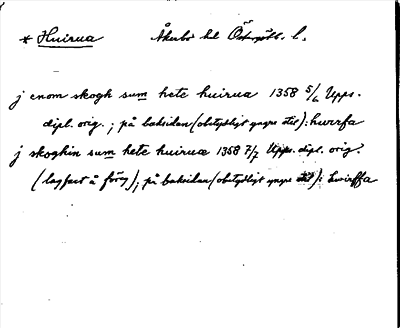 * Huirua Åkerbo hd Östergötl. l.
j enom skogh sum hete huirua 1358 5/6 Upps.
dipl. orig.; på baksidan (obetydligt yngre stil): hwrfa
j skoghin sum hete huirua 1358 7/7 Upps. dipl. orig.
(lagfart å föreg); på baksidan (obetydligt yngre stil): hwirffa